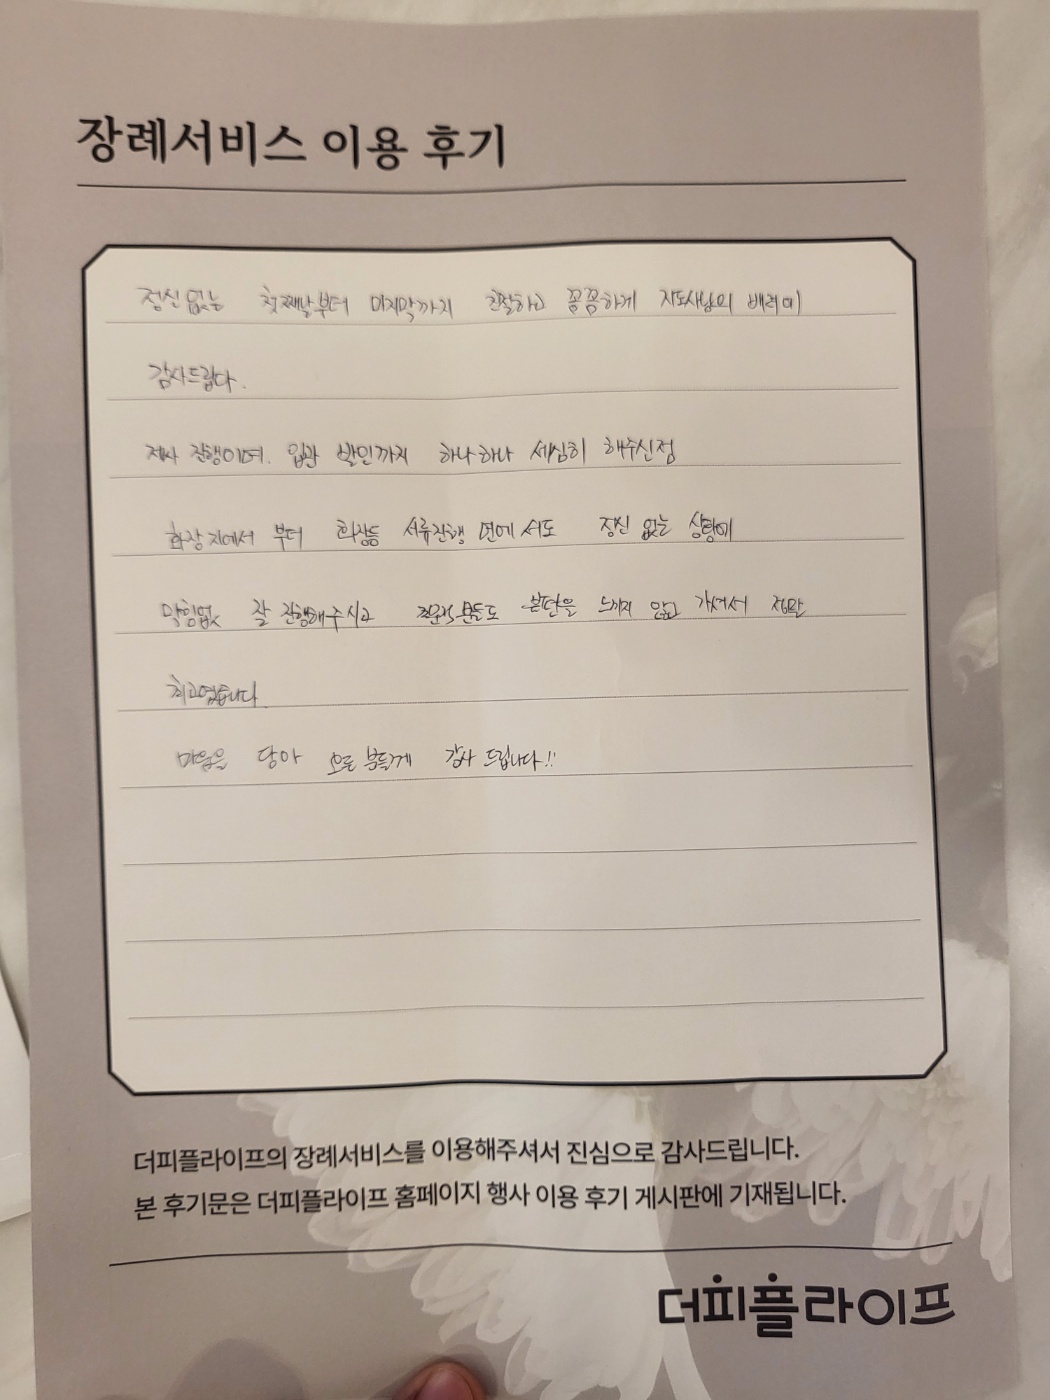 장례서비스 이용 후기
정신없는 첫째날부터 마지막까지 친절하고 꼼꼼하게 지도사님의 배려에
감사드립다.
제사 진행이며. 입관 발인까지 하나하나 세심히 해주신점
화장지에서 부터 화장등 서류진행 면에서도 정신 없는 상황에
막힘없 잘 진행해주시고 분들도 본분을 느끼지 않고 가셔서 정말
최고였습니다.
마음을 담아 모든 분들게 감사 드립니다!!
더피플라이프의 장례서비스를 이용해주셔서 진심으로 감사드립니다.
본 후기문은 더피플라이프 홈페이지 행사 이용 후기 게시판에 기재됩니다.
더피플라이프